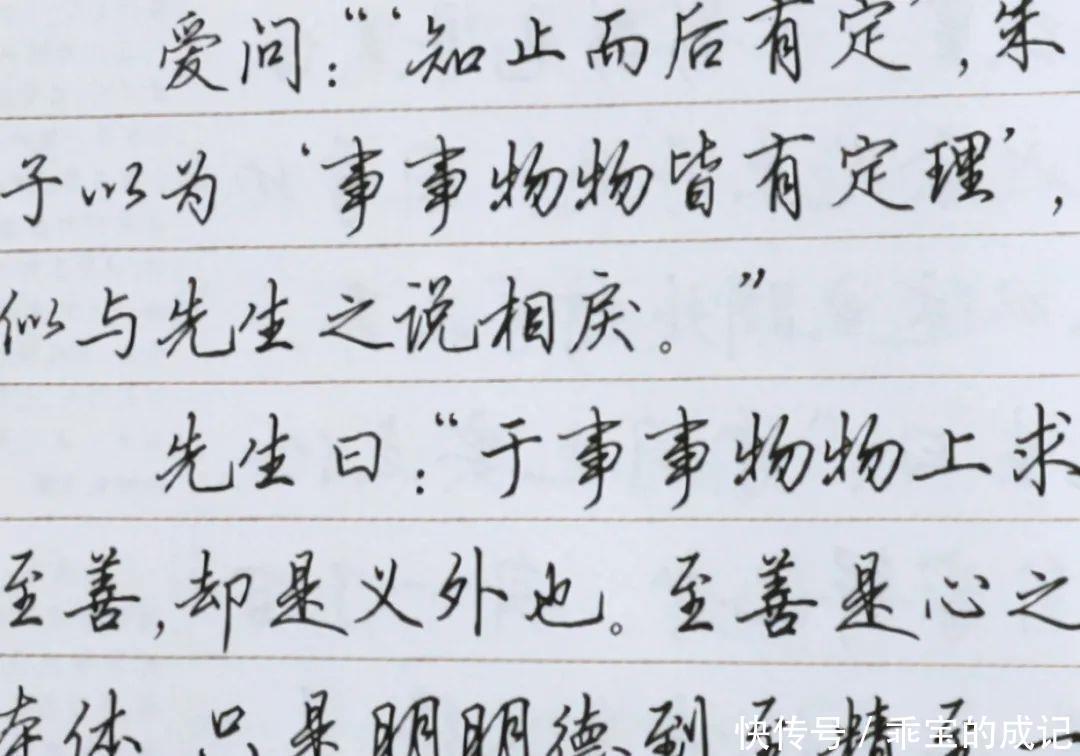 爱问：“‘知止而后有定’，朱
子以为‘事事物物皆有定理’，
似与先生之说相戾。”
先生曰：“于事事物物上求
至善，却是义外也。至善是心之
本体 只是明明德到至精至
快传号／乖宝的成记